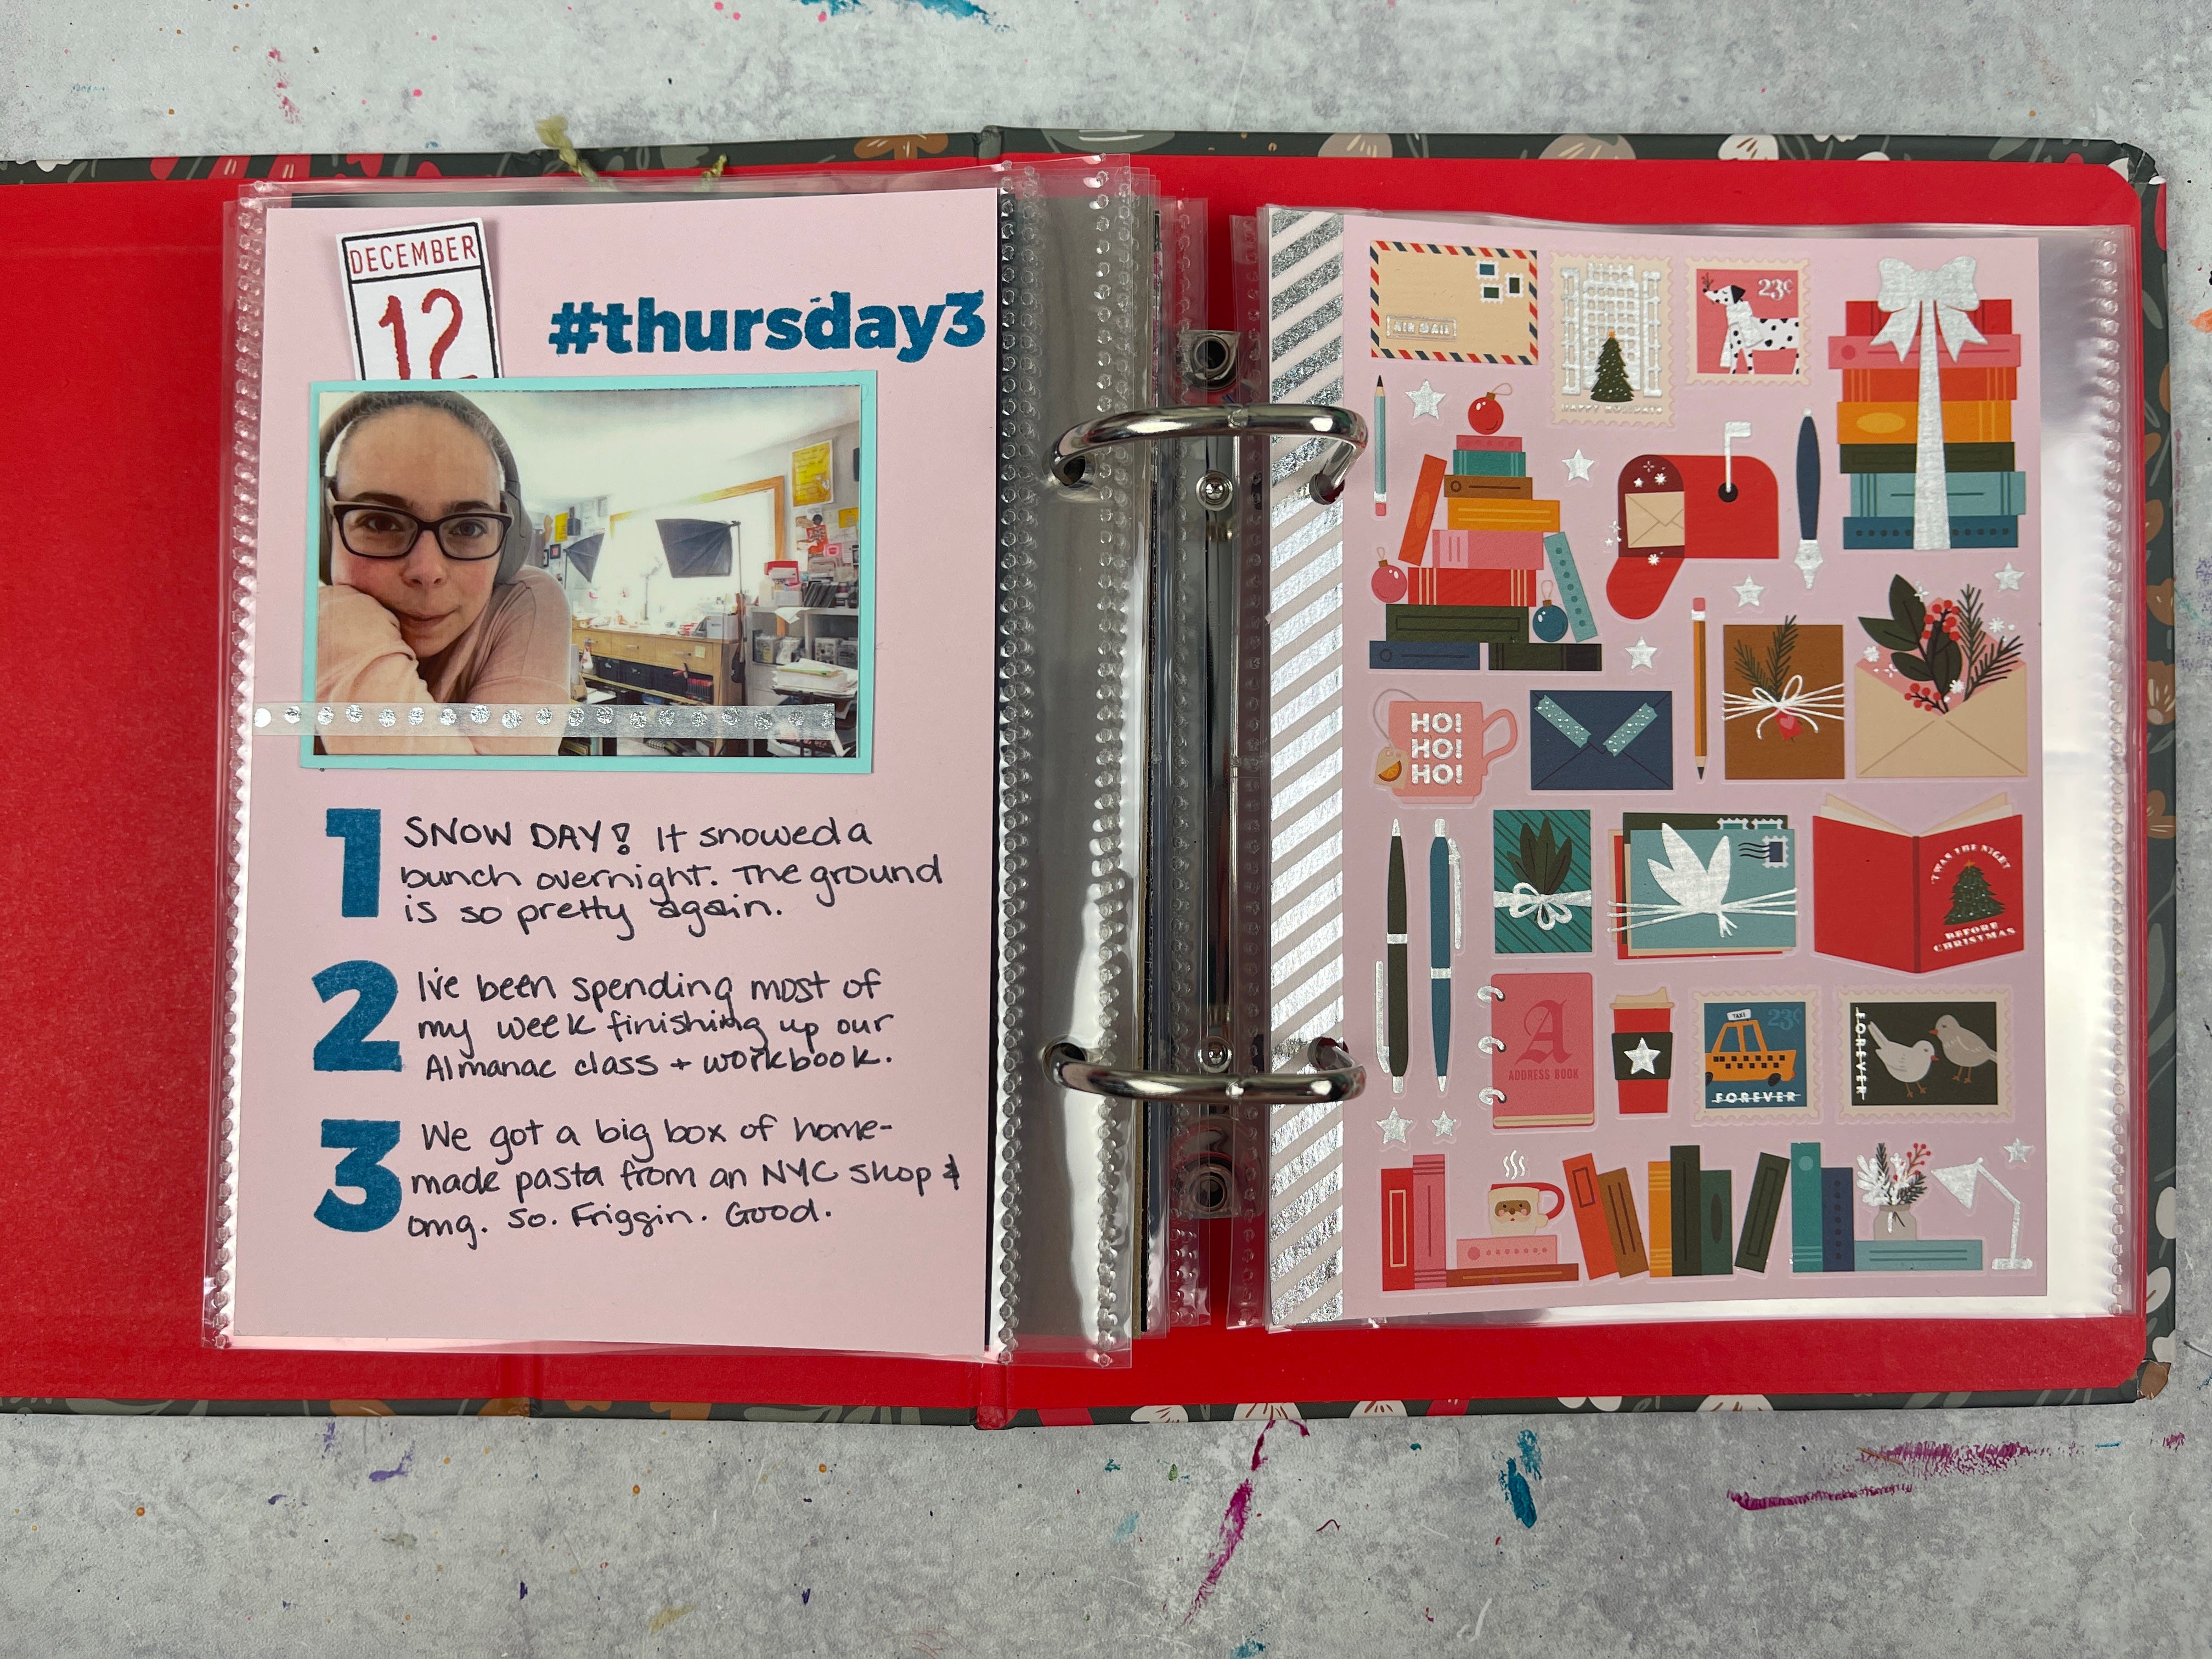 DECEMBER
12
#thursday3
1 SNOW DAY! It snowed a
bunch overnight. The ground
is so pretty again.
2 I've been spending most of
my week finishing up our
Almanac class + workbook.
3 We got a big box of home-
made pasta from an NYC shop &
omg. So. Friggin. Good.
AIR MAIL
HAPPY HOLIDAYS
23¢
HO!
HO!
HO!
'TWAS THE NIGHT
BEFORE
CHRISTMAS
A
ADDRESS BOOK
TAXI
23¢
FOREVER
FOREVER